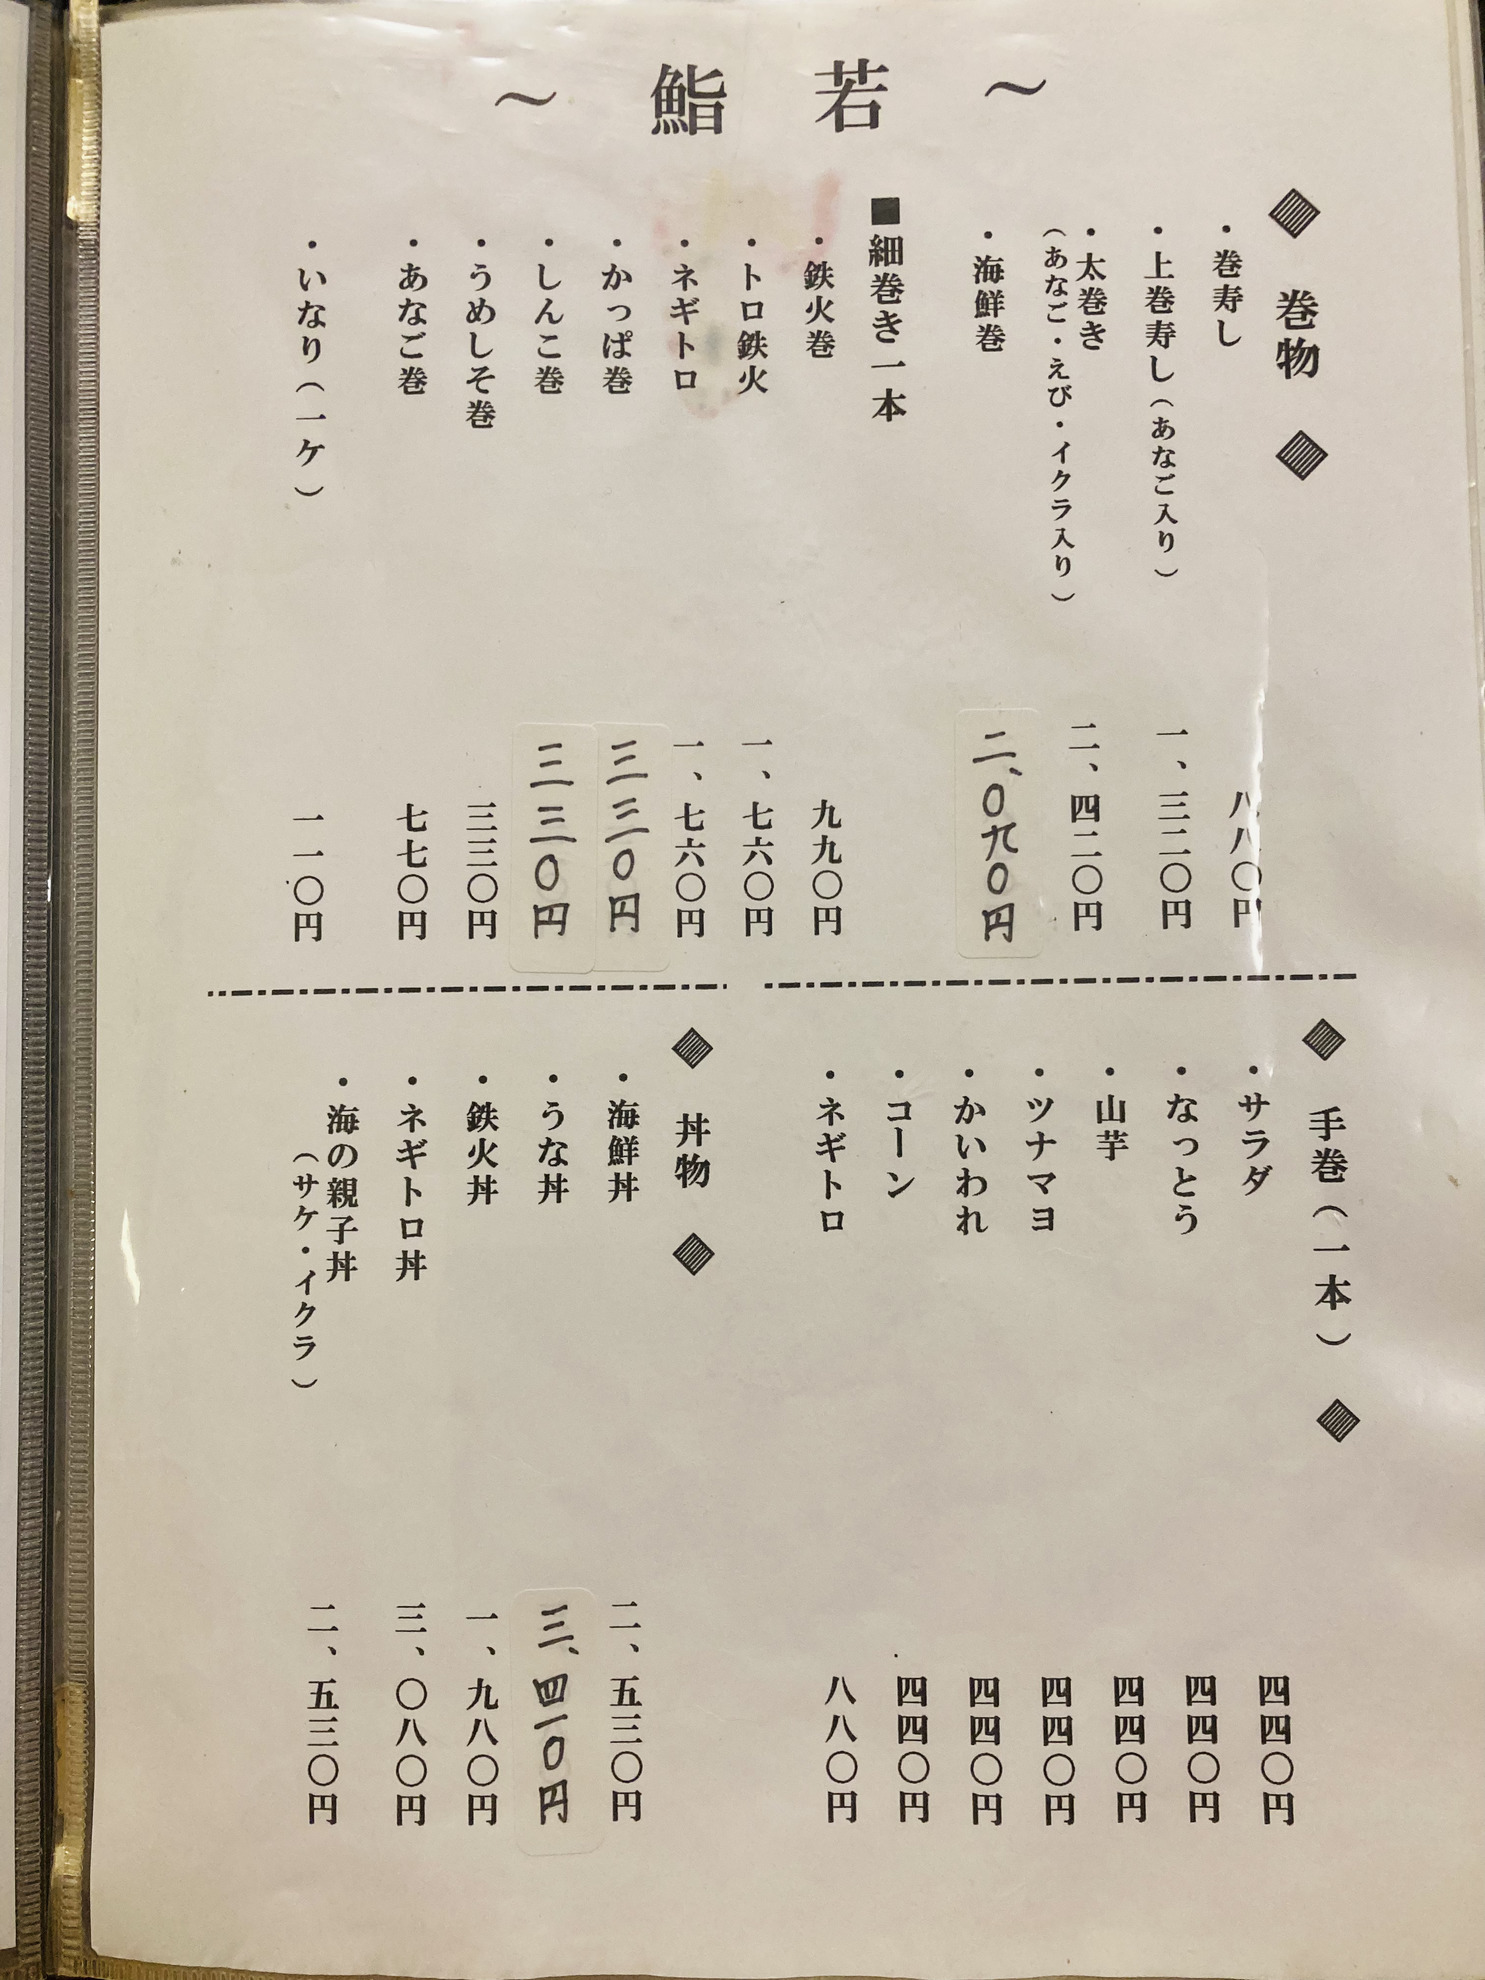 ～ 鮨 若 ～
◆ 巻物 ◆
・巻寿し 八八〇円
・上巻寿し（あなご入り） 一、三二〇円
・太巻き 二、四二〇円
（あなご・えび・イクラ入り）
・海鮮巻 二、〇九〇円
■細巻き一本
・鉄火巻 九九〇円
・トロ鉄火 一、七六〇円
・ネギトロ 一、七六〇円
・かっぱ巻 三三〇円
・しんこ巻 三三〇円
・うめしそ巻 三三〇円
・あなご巻 七七〇円
・いなり（一ケ） 一一〇円
◆ 手巻（一本） ◆
・サラダ 四四〇円
・なっとう 四四〇円
・山芋 四四〇円
・ツナマヨ 四四〇円
・かいわれ 四四〇円
・コーン 四四〇円
・ネギトロ 八八〇円
◆ 丼物 ◆
・海鮮丼 二、五三〇円
・うな丼 三、四一〇円
・鉄火丼 一、九八〇円
・ネギトロ丼 三、〇八〇円
・海の親子丼 二、五三〇円
（サケ・イクラ）